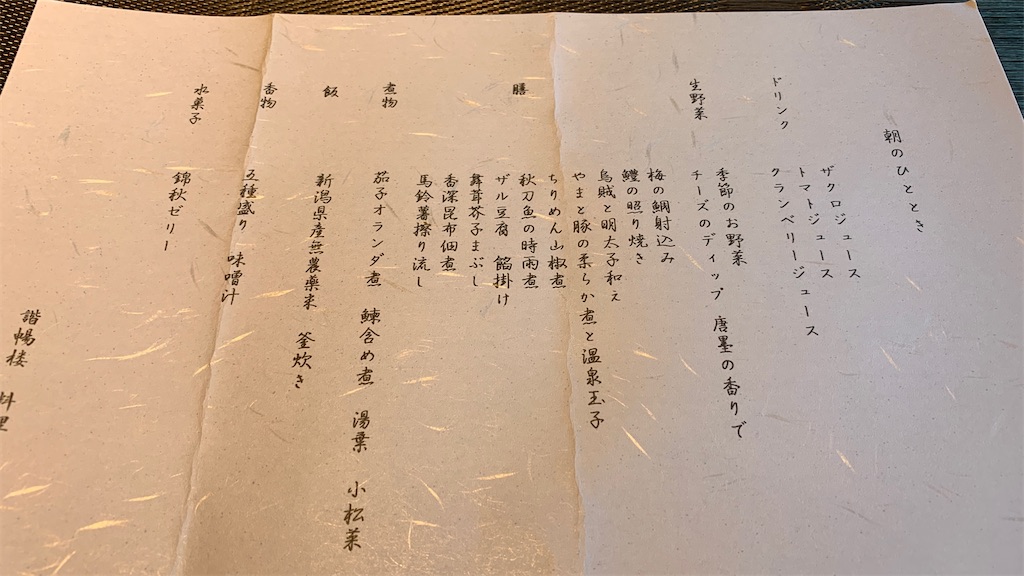 朝のひととき
ドリンク
ザクロジュース
トマトジュース
クランベリージュース
生野菜
季節のお野菜
チーズのディップ 唐墨の香りで
膳
梅の鯛射込み
鱧の照り焼き
烏賊と明太子和え
やまと豚の柔らか煮と温泉玉子
ちりめん山椒煮
秋刀魚の時雨煮
ザル豆腐 餡掛け
舞茸芥子まぶし
香深昆布佃煮
馬鈴薯擦り流し
煮物
茄子オランダ煮 鰊含め煮 湯葉 小松菜
飯
新潟県産無農薬米 釜炊き
香物
五種盛り 味噌汁
水菓子
錦秋ゼリー
諧暢楼 料理